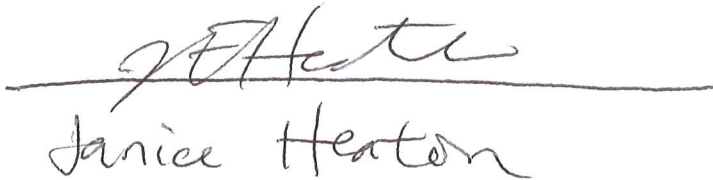 JEHeaton
Janice Heaton